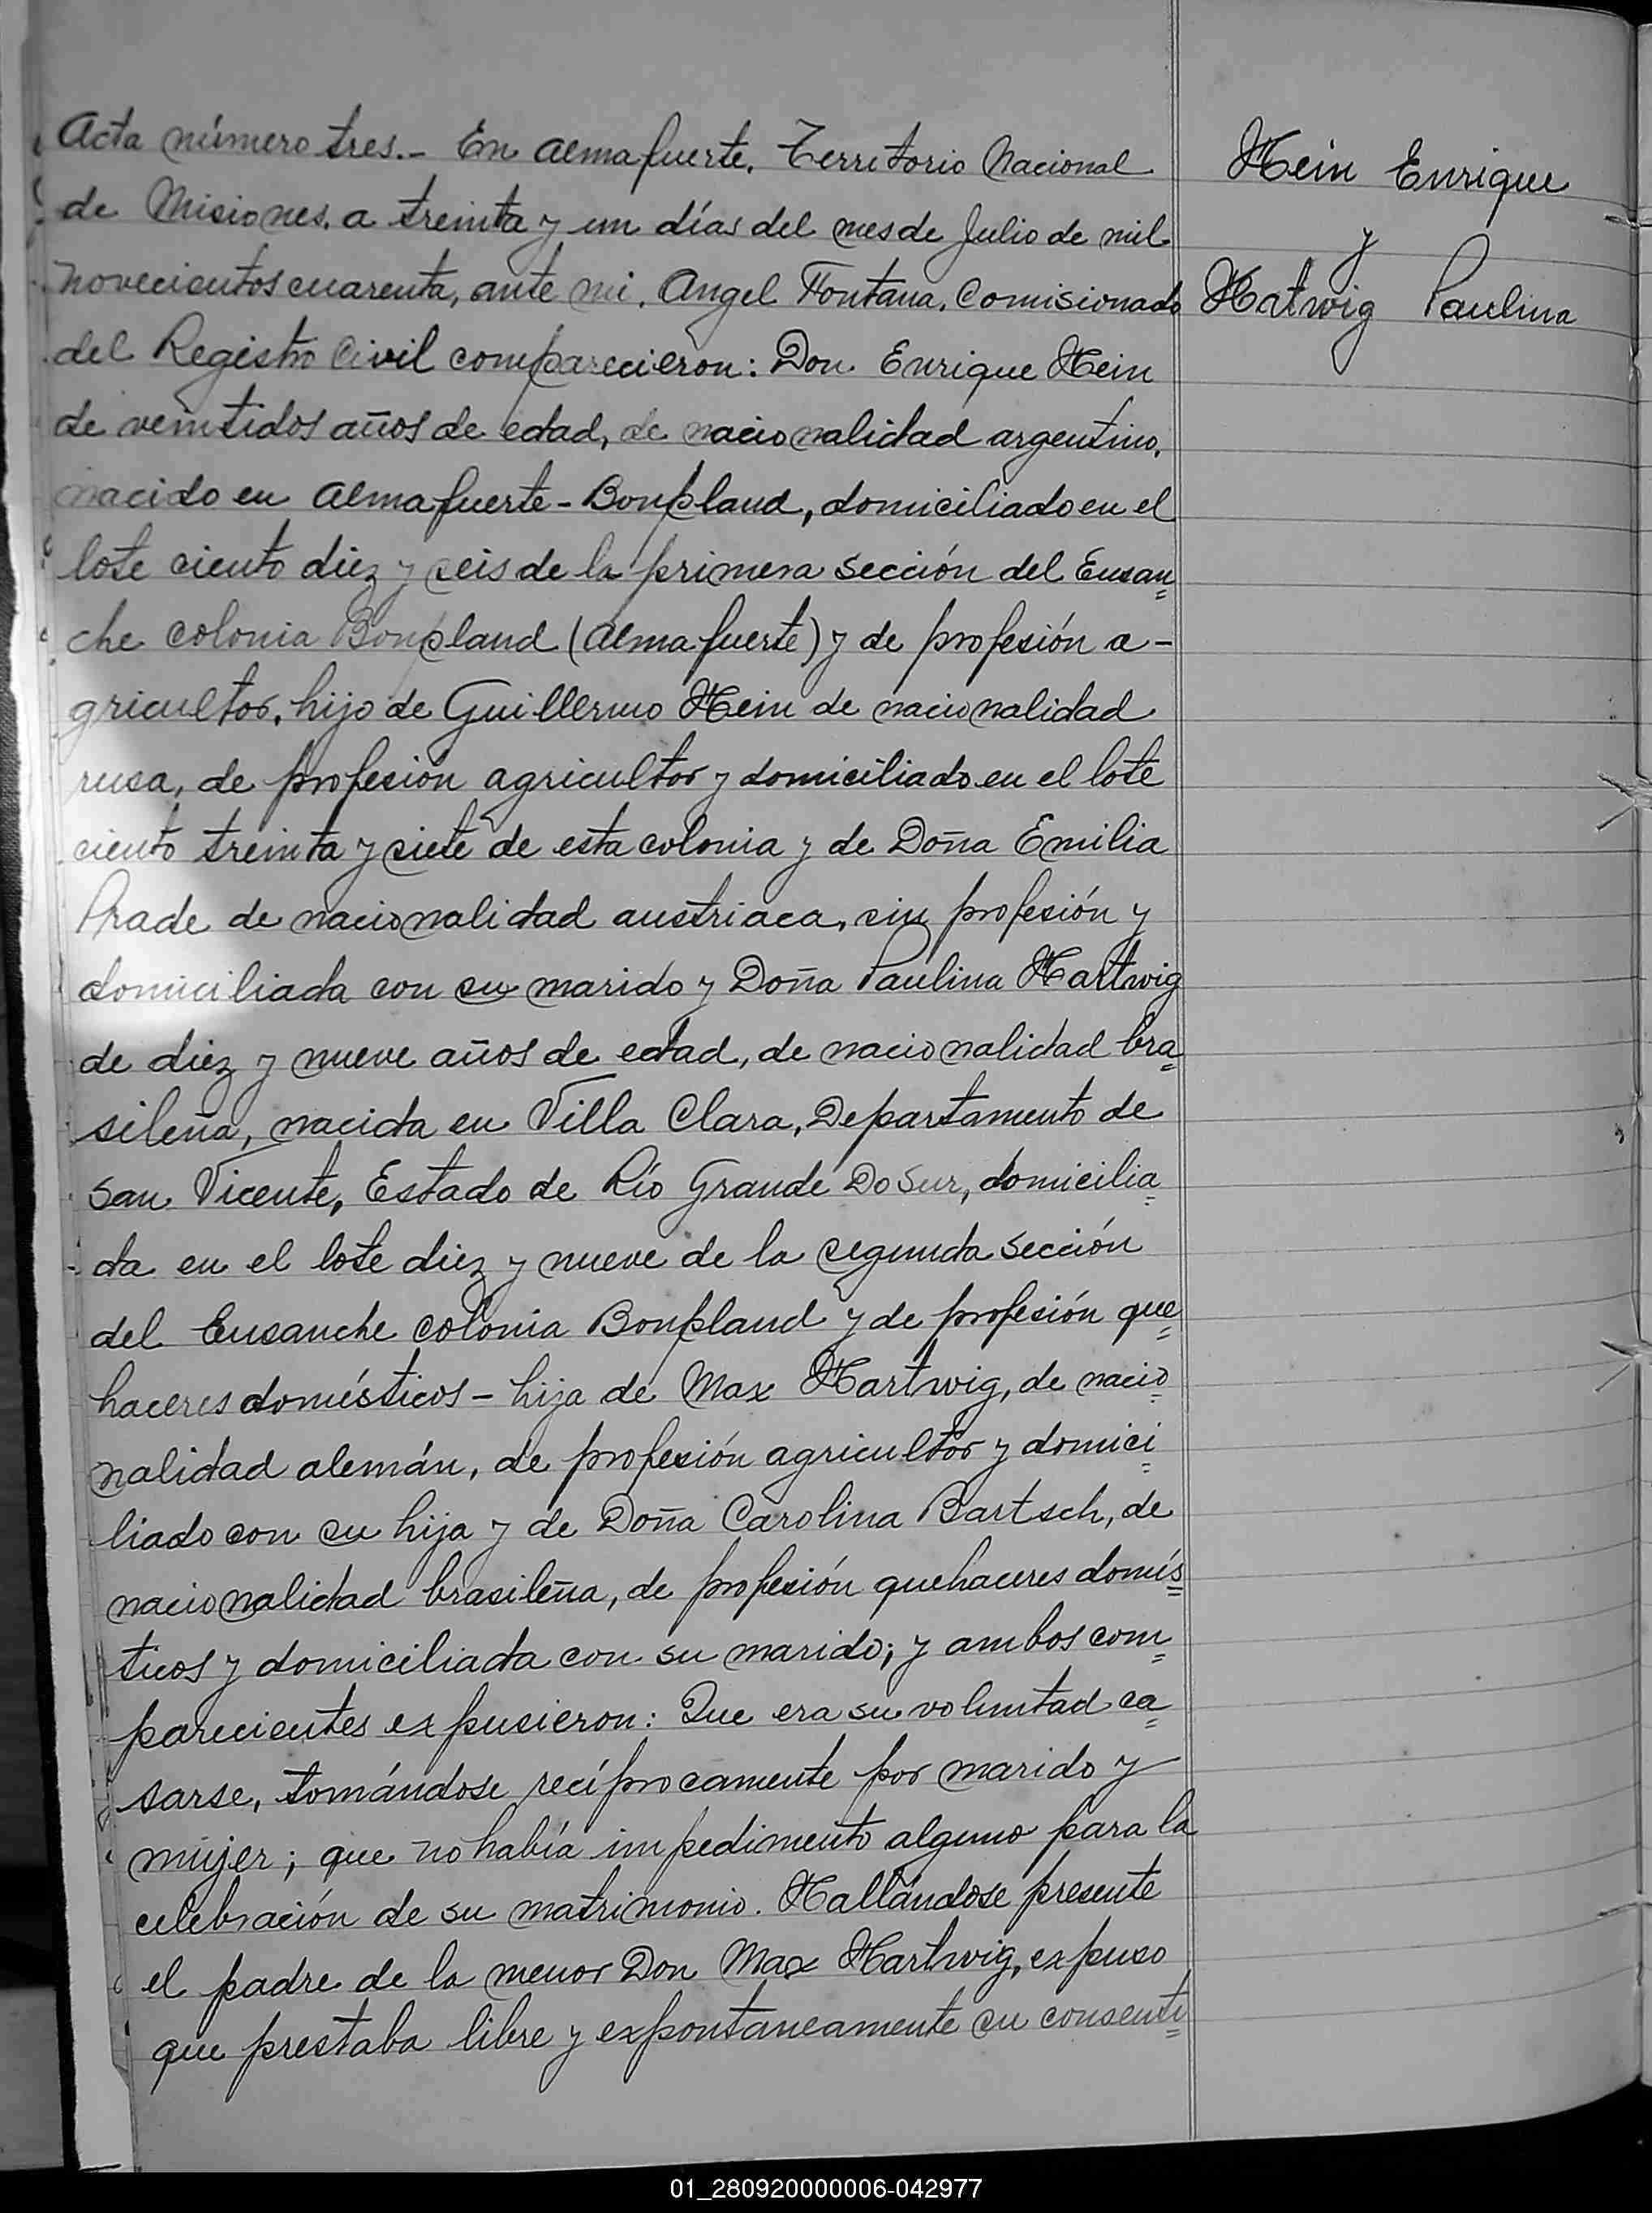 Acta número tres.- En Almafuerte, Territorio Nacional
de Misiones, a treinta y un días del mes de Julio de mil
novecientos cuarenta, ante mi, Angel Fontana, Comisionado
del Registro Civil comparecieron: Don Enrique Hein
de veintidos años de edad, de nacionalidad argentino,
nacido en Almafuerte-Bonpland, domiciliado en el
lote ciento diez y seis de la primera sección del Ensan=
che colonia Bonpland (Almafuerte) y de profesión a-
gricultor, hijo de Guillermo Hein de nacionalidad
rusa, de profesión agricultor y domiciliado en el lote
ciento treinta y siete de esta colonia y de Doña Emilia
Prade de nacionalidad austriaca, sin profesión y
domiciliada con su marido y Doña Paulina Hartwig
de diez y nueve años de edad, de nacionalidad bra=
sileña, nacida en Villa Clara, Departamento de
San Vicente, Estado de Río Grande Do Sur, domicilia=
da en el lote diez y nueve de la segunda sección
del Ensanche colonia Bonpland y de profesión que=
haceres domésticos - hija de Max Hartwig, de nacio=
nalidad alemán, de profesión agricultor y domici=
liado con su hija y de Doña Carolina Bartsch, de
nacionalidad brasileña, de profesión quehaceres domés=
ticos y domiciliada con su marido; y ambos com=
parecientes expusieron: Que era su voluntad ca=
sarse, tomándose recíprocamente por marido y
mujer; que no había impedimento alguno para la
celebración de su matrimonio. Hallándose presente
el padre de la menor Don Max Hartwig, expuso
que prestaba libre y expontaneamente su consenti=
Hein Enrique
y
Hatwig Paulina
01_280920000006-042977